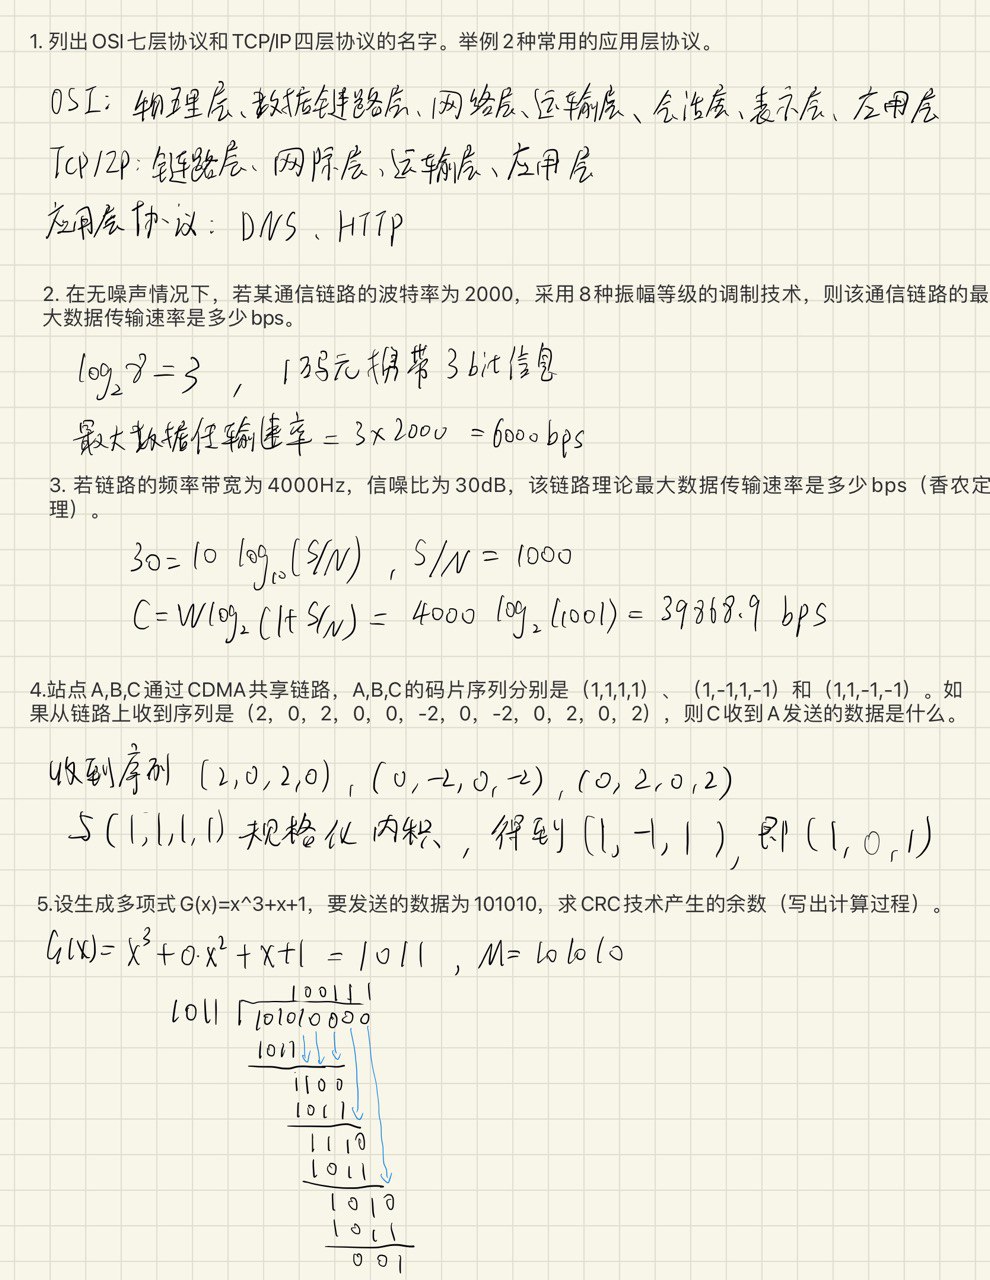 1. 列出OSI七层协议和TCP/IP四层协议的名字。举例2种常用的应用层协议。
OSI: 物理层、数据链路层、网络层、运输层、会话层、表示层、应用层
TCP/IP: 链路层、网际层、运输层、应用层
应用层协议: DNS、HTTP
2. 在无噪声情况下，若某通信链路的波特率为2000，采用8种振幅等级的调制技术，则该通信链路的最
大数据传输速率是多少bps。
log₂8=3 , 1码元携带3bit信息
最大数据传输速率 = 3×2000 =6000bps
3. 若链路的频率带宽为4000Hz，信噪比为30dB，该链路理论最大数据传输速率是多少bps（香农定
理）。
30=10 log₁₀(S/N) , S/N = 1000
C=Wlog₂(1+S/N)= 4000 log₂(1001)=39868.9 bps
4.站点A,B,C通过CDMA共享链路，A,B,C的码片序列分别是（1,1,1,1）、（1,-1,1,-1）和（1,1,-1,-1）。如
果从链路上收到序列是（2，0，2，0，0，-2，0，-2，0，2，0，2），则C收到A发送的数据是什么。
收到序列 (2,0,2,0) , (0,-2,0,-2) , (0,2,0,2)
与(1,1,1,1) 规格化内积 , 得到(1,-1,1) , 即(1,0,1)
5.设生成多项式G(x)=x^3+x+1，要发送的数据为101010，求CRC技术产生的余数（写出计算过程）。
G(x)= x³+0·x²+x+1 = 1011 , M=101010
100111
1011 101010000
1011
1100
1011
1110
1011
1010
1011
001